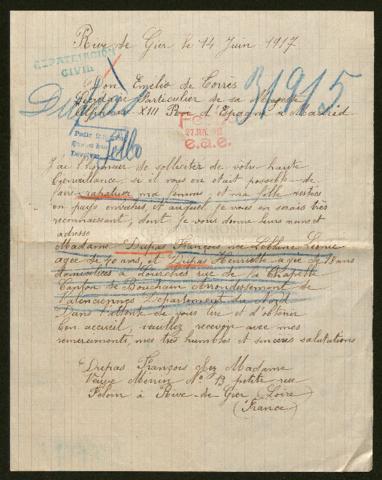 Rive de Gier le 14 Juin 1917
REPATRIACIÓN
CIVIL
Don Emilio de Torres
Secrétaire Particulier de sa Majesté
Alphonse XIII Roi d'Espagne à Madrid
31915
Dupas
27 JUN
e.a.e.
J'ai l'honneur de solliciter de votre haute
bienveillance, si il vous en était possible de
faire rapatrier ma femme, et ma fille restées
en pays envahies, et auquel je vous en serais très
reconnaissant, dont je vous donne leurs noms et
adresse
Madame Dupas François née Leblanc Léonie
agée de 40 ans, et Dupas Henriette agée de 18 ans
domiciliées à Lourches rue de la Chapelle
Canton de Bouchain Arrondissement de
Valenciennes Département du Nord
Dans l'attente de vous lire et d'obtenir
bon accueil, veuillez recevoir avec mes
remerciements, mes très humbles et sincères salutations
Dupas François chez Madame
Veuve N° 13 petite rue
Féloin à Rive-de Gier (Loire)
(France)